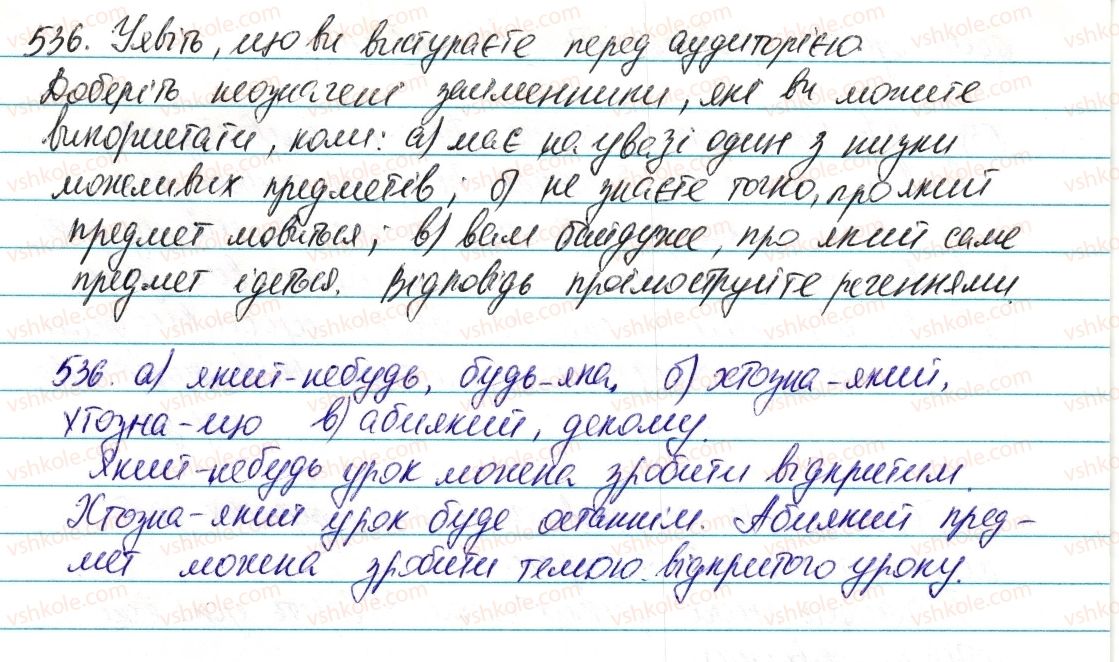 536. Уявіть, що ви виступаєте перед аудиторією.
Доберіть неозначені займенники, які ви можете
використати, коли: а) має на увазі один з низки
можливих предметів; б) не знаєте точно, про який
предмет мовиться; в) вам байдуже, про який саме
предмет ідеться. Відповідь проілюструйте реченнями.
536. а) який-небудь, будь-яка, б) хтозна-який,
хтозна-що в) абиякий, декому.
Який-небудь урок можна зробити відкритим.
Хтозна-який урок буде останнім. Абиякий пред-
мет можна зробити темою відкритого уроку.